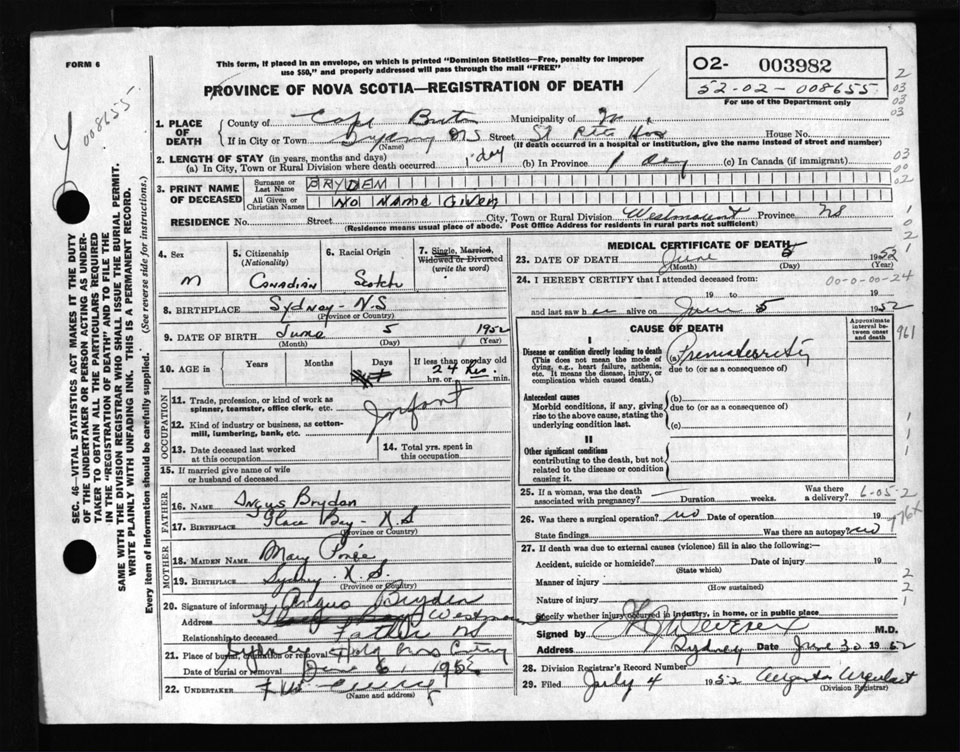 FORM 6
This form, if placed in an envelope, on which is printed "Dominion Statistics—Free, penalty for improper
use $50," and properly addressed will pass through the mail "FREE"
O2- 003982
52-02-008655
For use of the Department only
008655
PROVINCE OF NOVA SCOTIA—REGISTRATION OF DEATH
1. PLACE OF DEATH
County of Cape Breton Municipality of
If in City or Town Sydney NS Street St Rita Hos House No.
(Name) (If death occurred in a hospital or institution, give the name instead of street and number)
2. LENGTH OF STAY (in years, months and days)
(a) In City, Town or Rural Division where death occurred 1 day (b) In Province 1 day (c) In Canada (if immigrant)
3. PRINT NAME OF DECEASED
Surname or Last Name BRYDEN
All Given or Christian Names No Name Given
RESIDENCE No. Street City, Town or Rural Division Westmount Province NS
(Residence means usual place of abode. Post Office Address for residents in rural parts not sufficient)
SEC. 46—VITAL STATISTICS ACT MAKES IT THE DUTY
OF THE UNDERTAKER OR PERSON ACTING AS UNDER-
TAKER TO OBTAIN ALL THE PARTICULARS REQUIRED
IN THE "REGISTRATION OF DEATH" AND TO FILE THE
SAME WITH THE DIVISION REGISTRAR WHO SHALL ISSUE THE BURIAL PERMIT.
WRITE PLAINLY WITH UNFADING INK. THIS IS A PERMANENT RECORD.
Every item of information should be carefully supplied. (See reverse side for instructions.)
4. Sex M
5. Citizenship (Nationality) Canadian
6. Racial Origin Scotch
7. Single, Married, Widowed or Divorced (write the word)
8. BIRTHPLACE Sydney - N.S
(Province or Country)
9. DATE OF BIRTH June 5 1952
(Month) (Day) (Year)
10. AGE in Years Months Days If less than one day old
24 hrs. or min.
OCCUPATION
11. Trade, profession, or kind of work as
spinner, teamster, office clerk, etc. Infant
12. Kind of industry or business, as cotton-
mill, lumbering, bank, etc.
13. Date deceased last worked
at this occupation
14. Total yrs. spent in
this occupation
15. If married give name of wife
or husband of deceased
FATHER
16. NAME Angus Brydan
17. BIRTHPLACE Glace Bay - N.S
(Province or Country)
MOTHER
18. MAIDEN NAME Mary
19. BIRTHPLACE Sydney N.S.
(Province or Country)
20. Signature of informant Angus Bryden
Address Westmount
Relationship to deceased Father NS
21. Place of burial, cremation or removal Sydney Holy Cross
Date of burial or removal June 6, 1952
22. UNDERTAKER
(Name and address)
MEDICAL CERTIFICATE OF DEATH
23. DATE OF DEATH June 5 1952
(Month) (Day) (Year)
24. I HEREBY CERTIFY that I attended deceased from: 00-0-00-24
19 to 19
and last saw h alive on June 5 1952
CAUSE OF DEATH
Approximate interval between onset and death
I
Disease or condition directly leading to death
(This does not mean the mode of
dying, e.g., heart failure, asthenia,
etc. It means the disease, injury, or
complication which caused death.)
(a) Prematurity
due to (or as a consequence of)
Antecedent causes
Morbid conditions, if any, giving
rise to the above cause, stating the
underlying condition last.
(b)
due to (or as a consequence of)
(c)
II
Other significant conditions
contributing to the death, but not
related to the disease or condition
causing it.
25. If a woman, was the death
associated with pregnancy? Duration weeks. Was there a delivery? 6-05-2
26. Was there a surgical operation? no Date of operation 19
State findings Was there an autopsy? no
27. If death was due to external causes (violence) fill in also the following:—
Accident, suicide or homicide? Date of injury 19
(State which)
Manner of injury
(How sustained)
Nature of injury
Specify whether injury occurred in industry, in home, or in public place
Signed by M.D.
Address Sydney Date June 30 1952
28. Division Registrar's Record Number
29. Filed July 4 1952 Augusta Urquhart
(Division Registrar)
2
03
03
03
03
00
02
961
776X